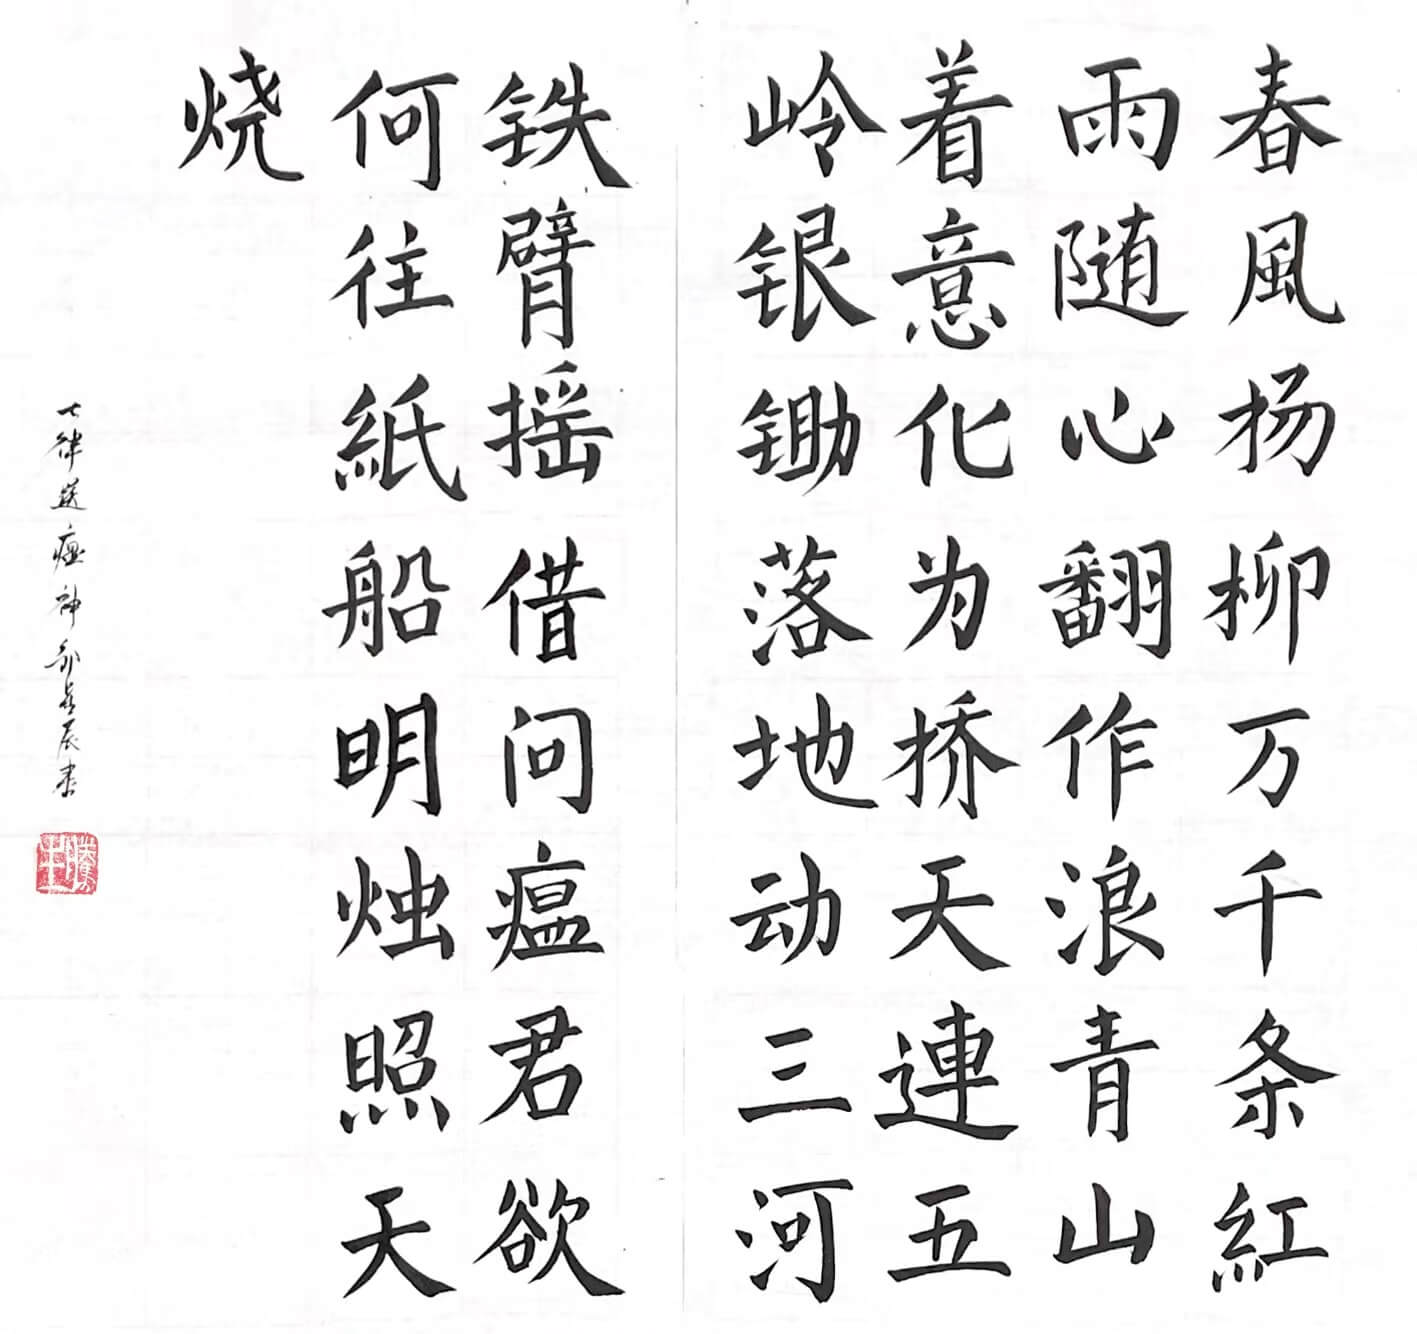 春風扬柳万千条紅
雨随心翻作浪青山
着意化为挢天連五
岭银锄落地动三河
铁臂摇借问瘟君欲
何往紙船明烛照天
烧
七律送瘟神